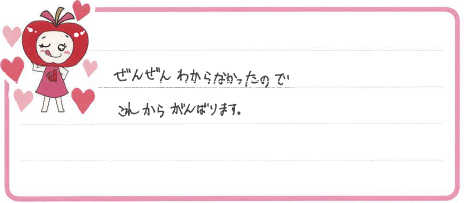 ぜんぜん わからなかったので
これから がんばります。